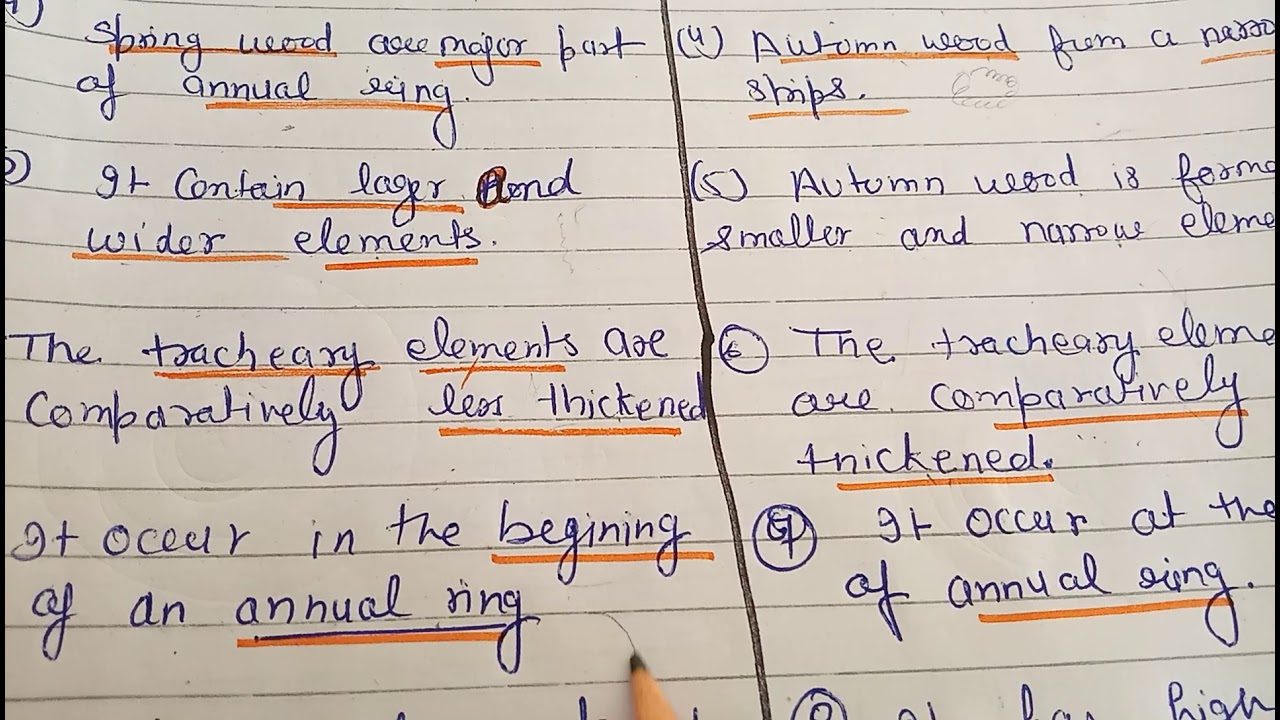 Spring wood are major part
of annual ring.
It Contain lager and
wider elements.
The tracheary elements are
Comparatively less thickened
It occur in the begining
of an annual ring
(4) Autumn wood from a narro
strips.
(5) Autumn wood is forme
smaller and narrow eleme
(6) The tracheary eleme
are comparatively
thickened.
(7) It occur at the
of annual ring.
(8) It has high